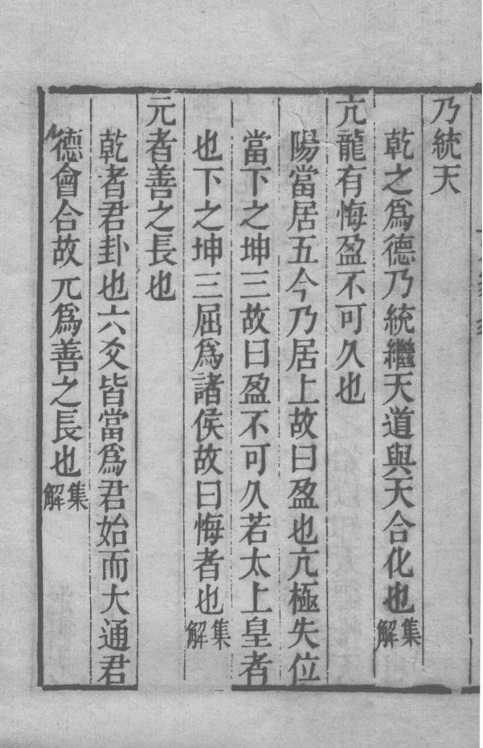 乃統天
乾之爲德乃統繼天道與天合化也集解
亢龍有悔盈不可久也
陽當居五今乃居上故曰盈也亢極失位
當下之坤三故曰盈不可久若太上皇者
也下之坤三屈爲諸侯故曰悔者也集解
元者善之長也
乾者君卦也六爻皆當爲君始而大通君
德會合故元爲善之長也集解